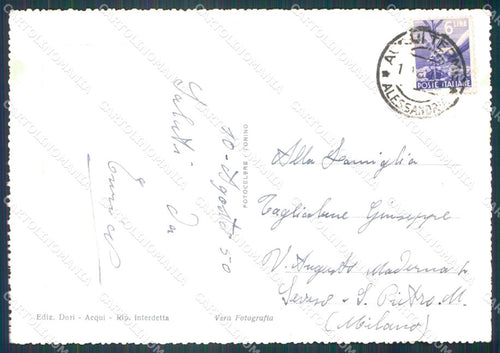 6 LIRE
POSTE ITALIANE
ACQUI TERME
ALESSANDRIA
10 - Agosto 50
Saluti da
Enrico
FOTOCELERE / TORINO
Alla Famiglia
Tagliabue Giuseppe
V. Augusto Moderna
Seveso - S. Pietro. M.
(Milano)
Ediz. Dori - Acqui - Rip. Interdetta
Vera Fotografia
CARTOLINOMANIA